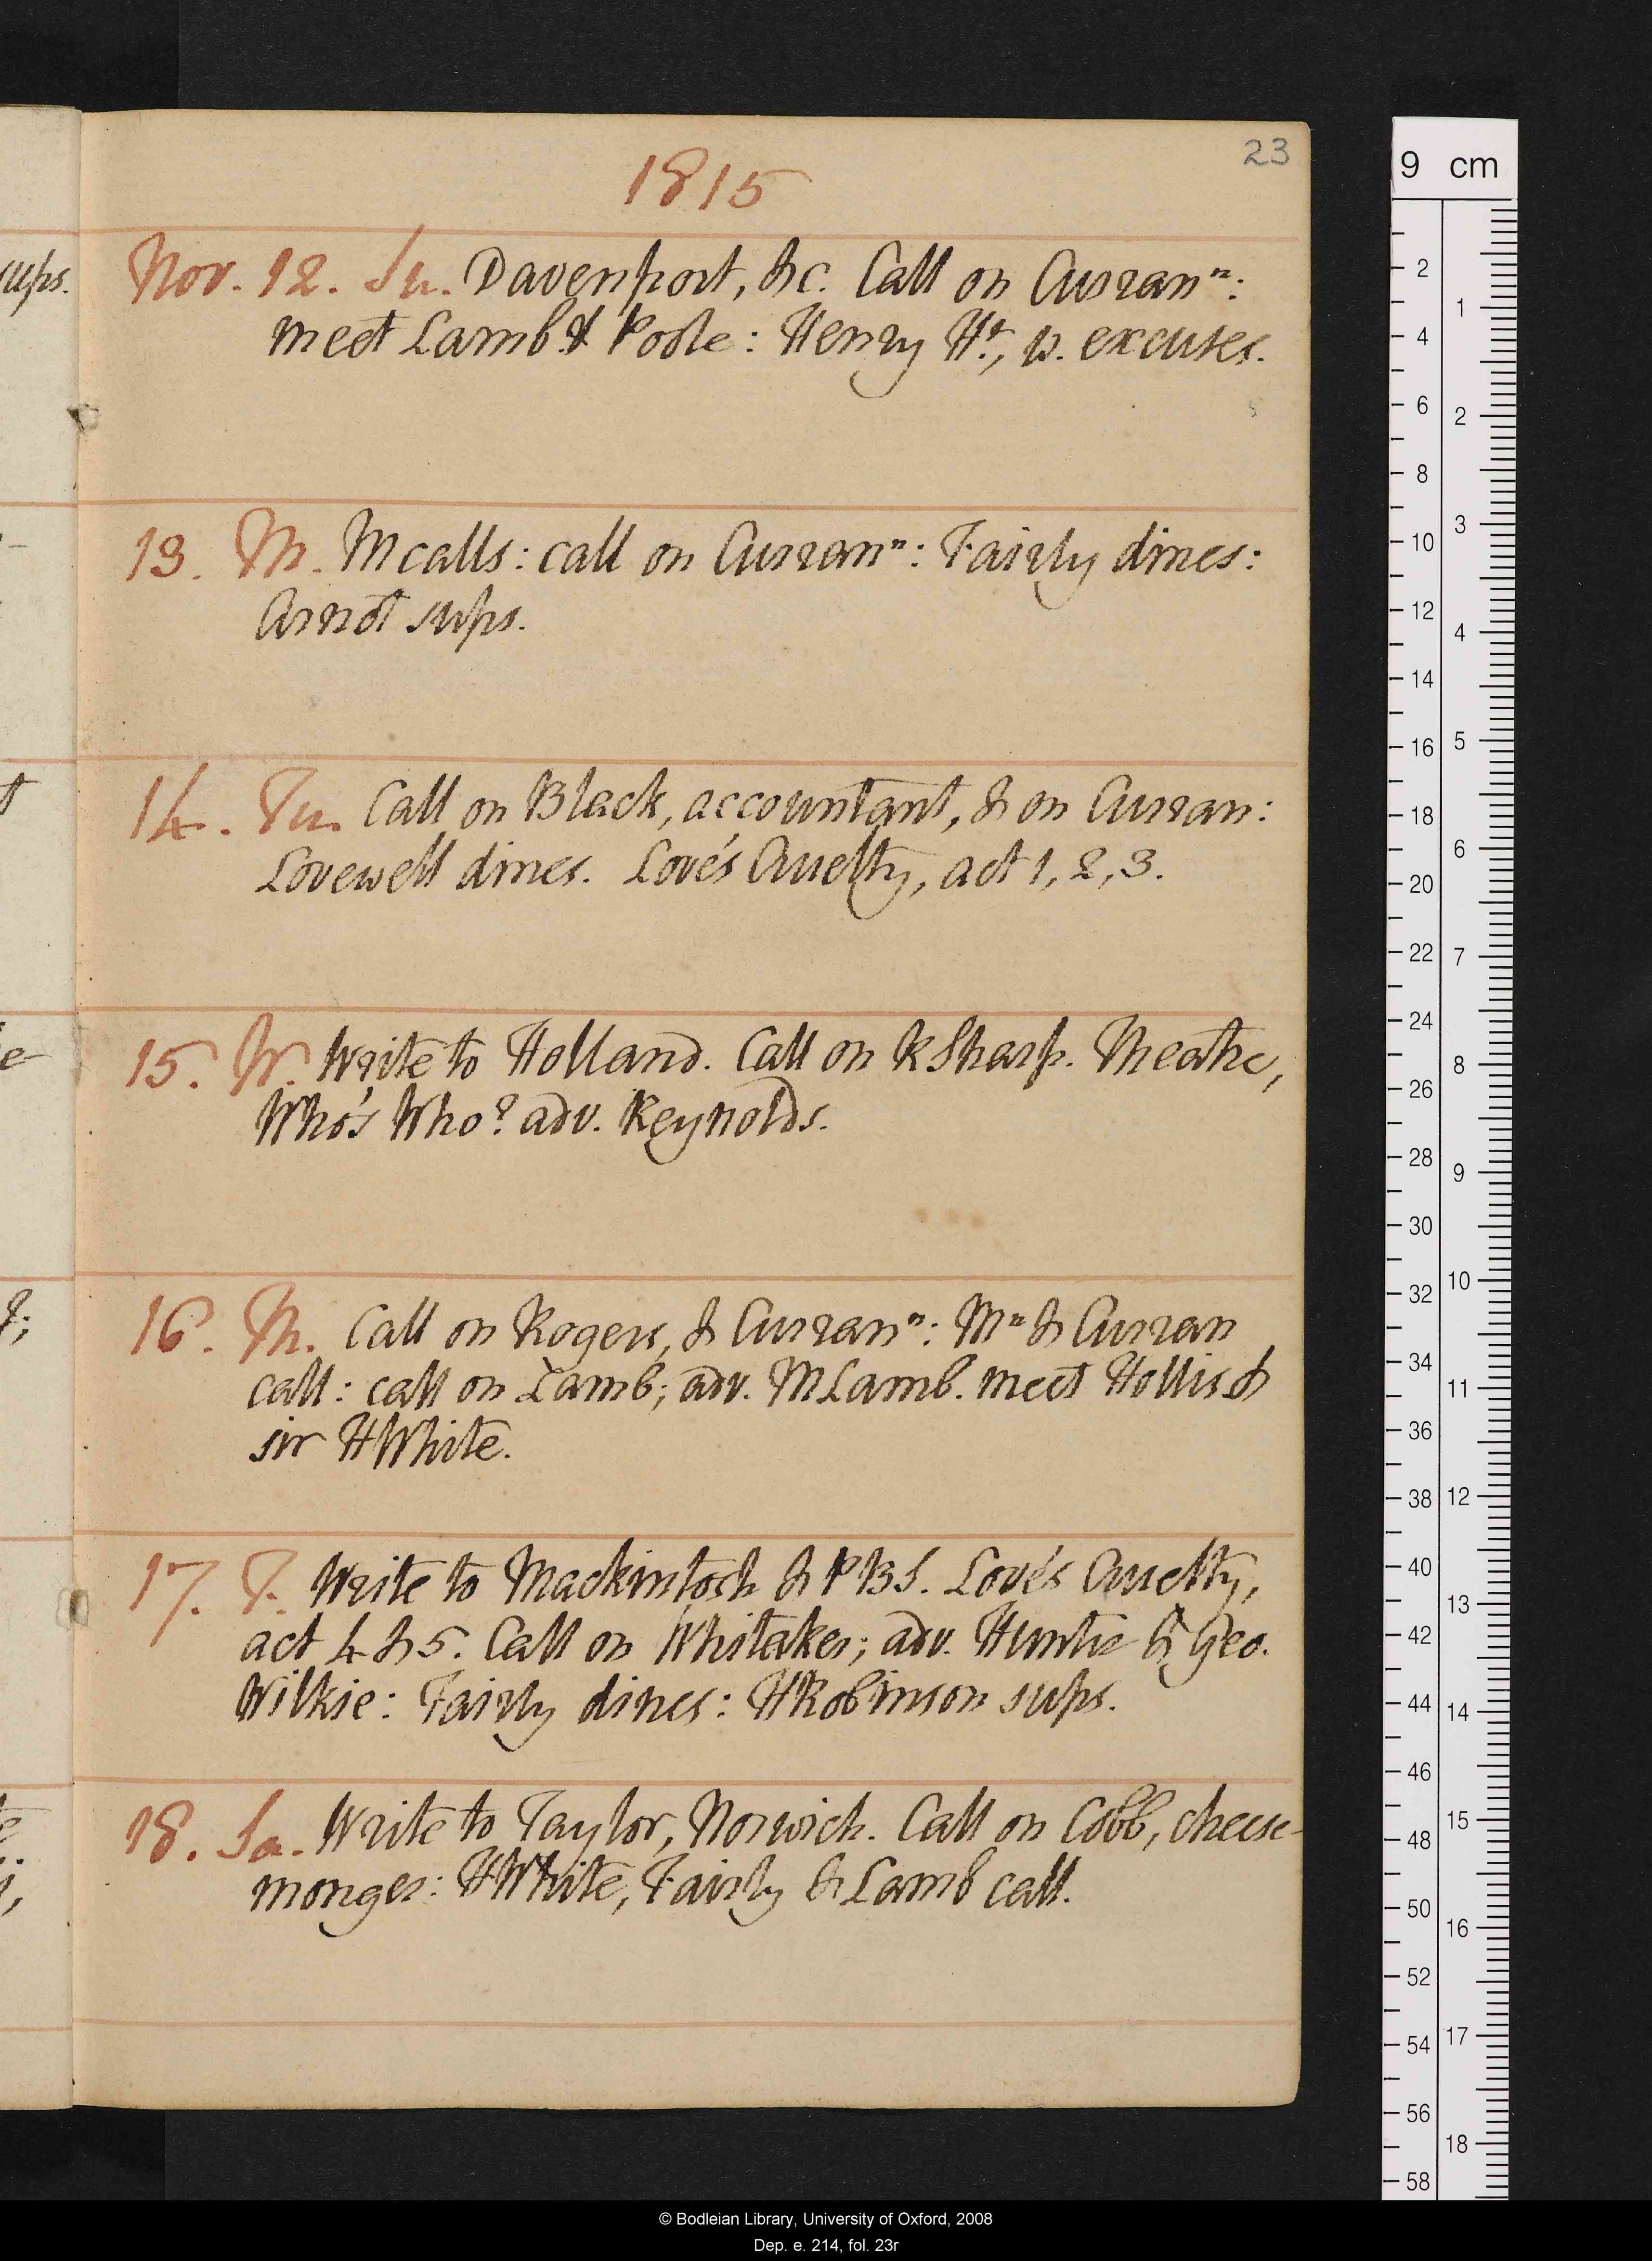 23
1815
Nov. 12. Su. Davenport, &c. Call on Curran n:
meet Lamb & Poole: Henry Hr., p. excuses.
13. M. M calls: call on Curran n: Fairly dines:
Arnot sups.
14. Tu. Call on Black, accountant, & on Curran:
Lovewell dines. Love's Cruelty, act 1, 2, 3.
15. W. Write to Holland. Call on R Sharp. Theatre,
Who's Who? adv. Reynolds.
16. Th. Call on Rogers, & Curran n: M n & Curran
call: call on Lamb; adv. M Lamb. meet Hollis &
sir H White.
17. F. Write to Mackintosh & PBS. Love's Cruelty,
act 4 & 5. Call on Whitaker; adv. Hunter & Geo.
Wilkie: Fairly dines: H Robinson sups.
18. Sa. Write to Taylor, Norwich. Call on Cobb, cheese-
monger: H White, Fairly & Lamb call.
sups.
9 cm
2 4 6 8 10 12 14 16 18 20 22 24 26 28 30 32 34 36 38 40 42 44 46 48 50 52 54 56 58
1 2 3 4 5 6 7 8 9 10 11 12 13 14 15 16 17 18
© Bodleian Library, University of Oxford, 2008
Dep. e. 214, fol. 23r